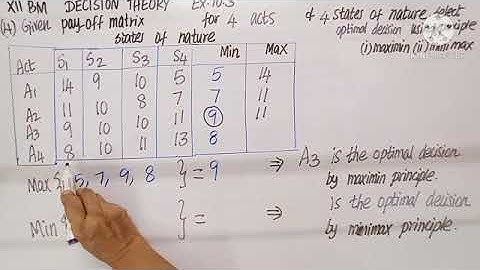 XII BM DECISION THEORY Ex-10.3
(4) Given pay-off matrix for 4 acts & 4 states of nature select
optimal decision using principle
(i) maximin (ii) minimax
States of nature
Act S1 S2 S3 S4 Min Max
A1 14 9 10 5 5 14
A2 11 10 8 7 7 11
A3 9 10 10 11 9 11
A4 8 10 11 13 8
Max 5, 7, 9, 8 } = 9 ⇒ A3 is the optimal decision
by maximin principle.
Min } = ⇒ is the optimal decision
by minimax principle.